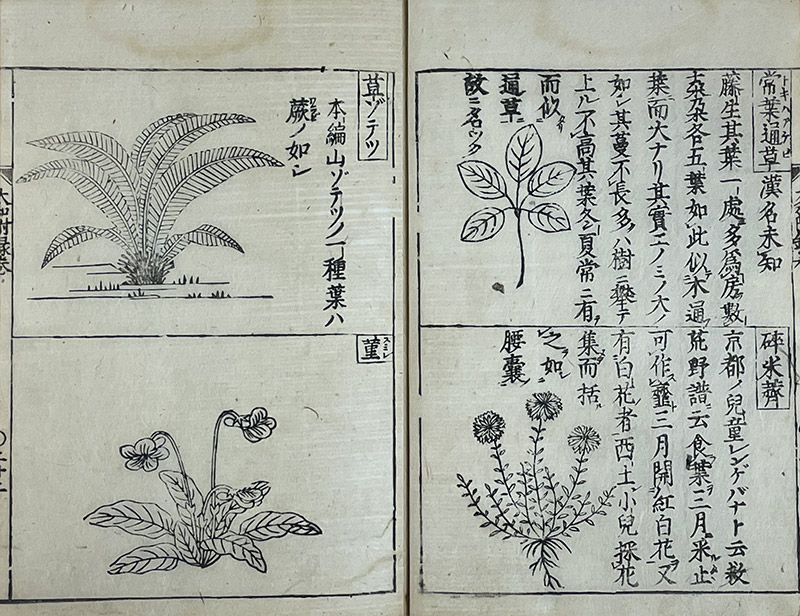 常葉通草 漢名未知
トキハアケビ
藤生其葉一處多爲房數
朶朶各五葉如此似木通
葉而大ナリ其實ヱノミノ大ノ
如シ其蔓不長多ハ樹ニ攀テ
上ル不高其葉冬夏常ニ有
而似
通草
故ニ名ツク
砕米薺
京都ノ兒童レンゲバナト云救
荒野譜云食葉三月采止
可作虀三月開紅白花又
有白花者西土小兒採花
集而括
之如
腰嚢
草ゾテツ
本編山ゾテツノ一種葉ハ
蕨ノ如シ
菫
スミレ